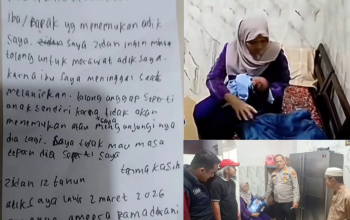 Ibu/Bapak yg menemukan adik
saya. saya zidan ingin minta
tolong untuk merawat adik saya.
karna ibu saya meninggal saat
melahirkan. tolong anggap seperti
anak sendiri karna saya tidak akan
menemukan atau mengunjungi nya
dia lagi. saya tidak mau masa
depan dia seperti saya
terima kasih
zidan 12 tahun
adik saya lahir 2 maret 2026
ramadhani